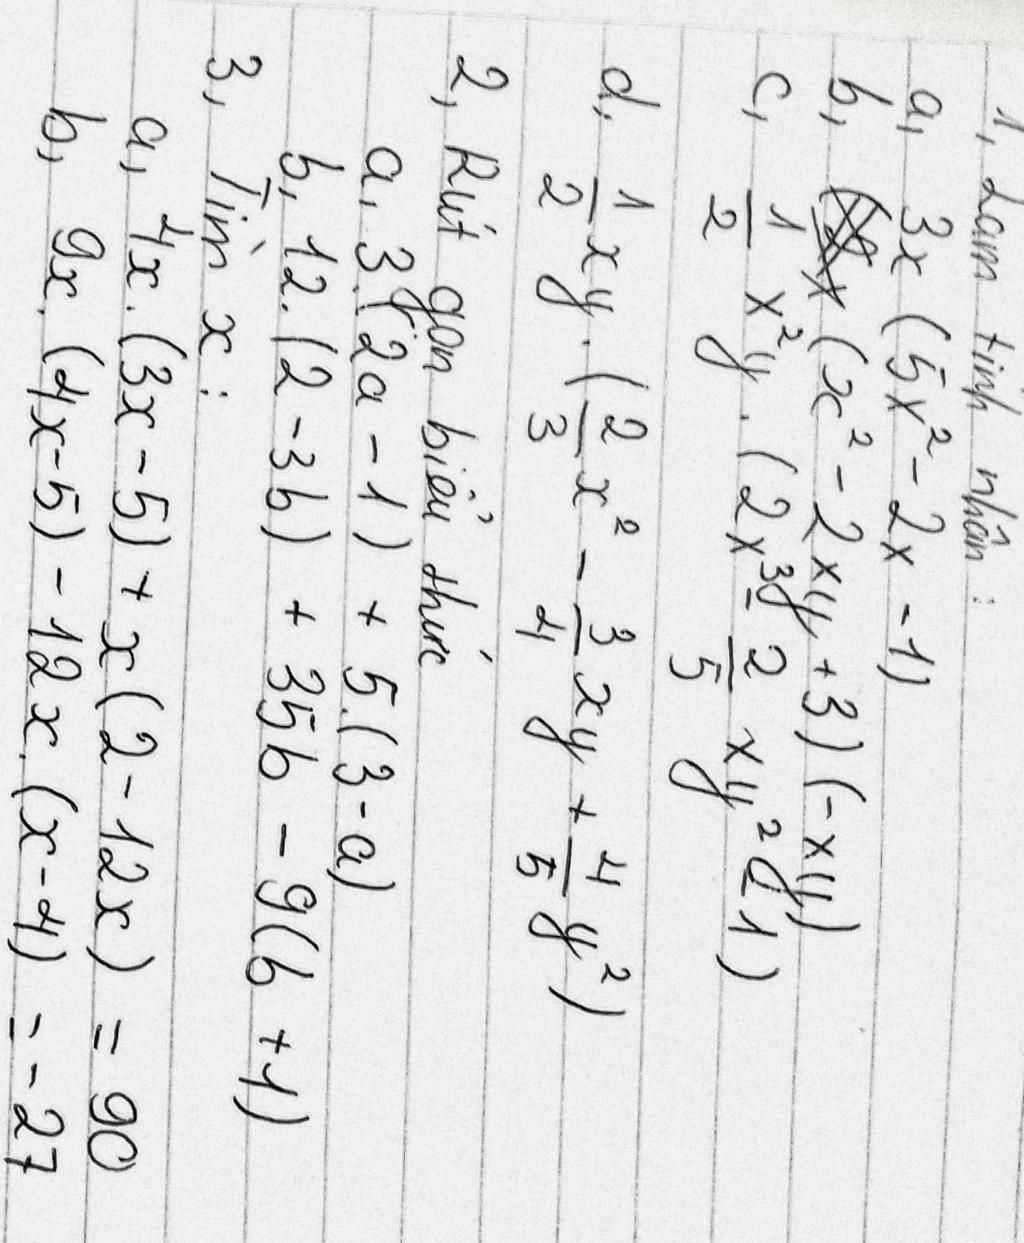 1, Làm tính nhân :
a, 3x (5x² - 2x - 1)
b, (x² - 2xy + 3) (-xy)
c, 1/2 x²y . (2x³ - 2/5 xy² - 1)
d, 1/2 xy . (2/3 x² - 3/4 xy + 4/5 y²)
2, Rút gọn biểu thức
a, 3.(2a - 1) + 5.(3 - a)
b, 12.(2 - 3b) + 35b - 9(b + 1)
3, Tìm x :
a, 4x.(3x - 5) + x(2 - 12x) = 90
b, 9x.(4x - 5) - 12x.(x - 4) = - 27